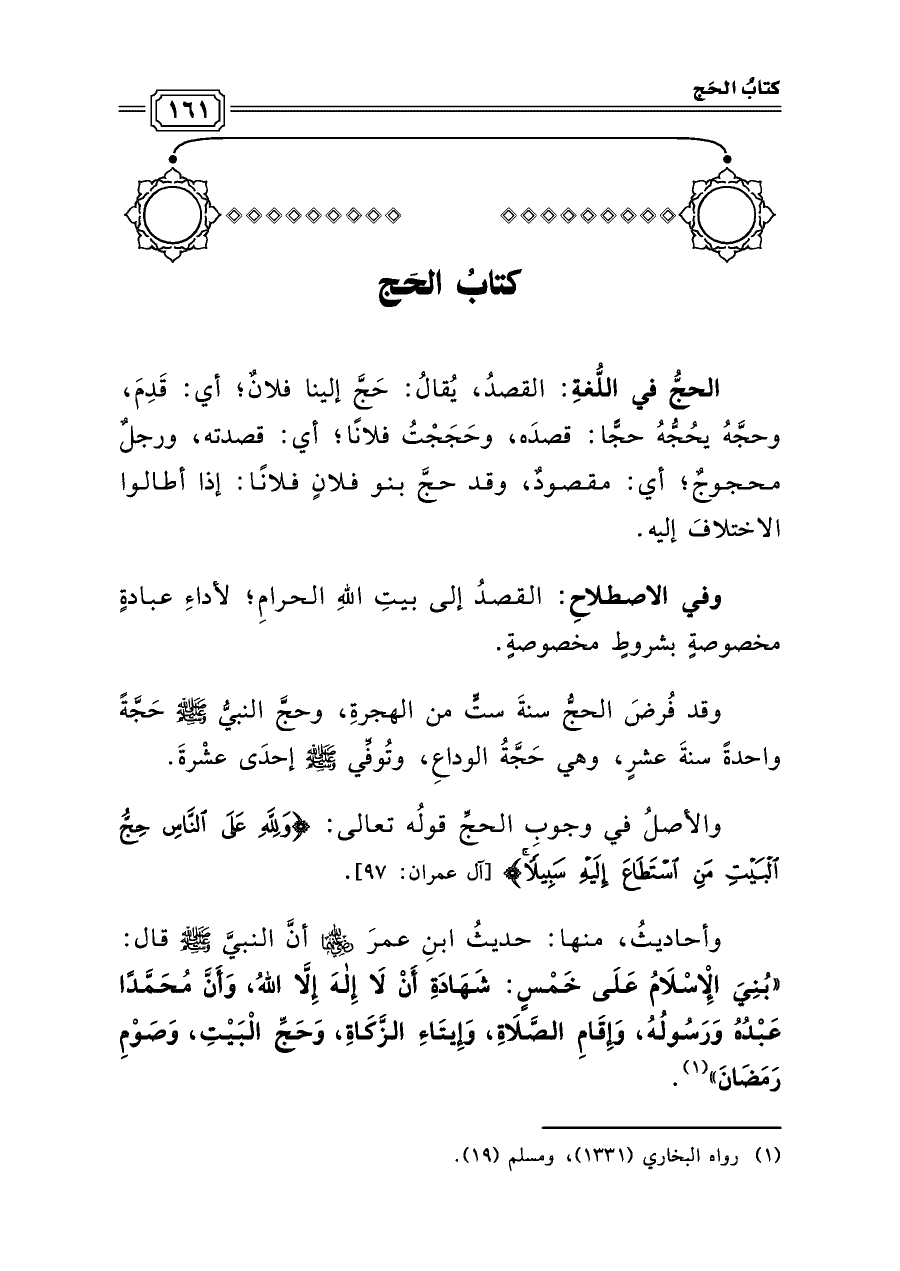 كتابُ الحَج
١٦١
كتابُ الحَج
الحجُّ في اللُّغةِ: القصدُ، يُقالُ: حَجَّ إلينا فلانٌ؛ أي: قَدِمَ،
وحجَّهُ يحُجُّهُ حجًّا: قصدَه، وحَجَجْتُ فلانًا؛ أي: قصدته، ورجلٌ
محجوجٌ؛ أي: مقصودٌ، وقد حجَّ بنو فلانٍ فلانًا: إذا أطالوا
الاختلافَ إليه.
وفي الاصطلاحِ: القصدُ إلى بيتِ اللهِ الحرامِ؛ لأداءِ عبادةٍ
مخصوصةٍ بشروطٍ مخصوصةٍ.
وقد فُرضَ الحجُّ سنةَ ستٍّ من الهجرةِ، وحجَّ النبيُّ ﷺ حَجَّةً
واحدةً سنةَ عشرٍ، وهي حَجَّةُ الوداعِ، وتُوفِّي ﷺ إحدَى عشْرةَ.
والأصلُ في وجوبِ الحجِّ قولُه تعالى: ﴿وَلِلَّهِ عَلَى ٱلنَّاسِ حِجُّ
ٱلْبَيْتِ مَنِ ٱسْتَطَاعَ إِلَيْهِ سَبِيلًاۚ﴾ [آل عمران: ٩٧].
وأحاديثُ، منها: حديثُ ابنِ عمرَ رضي الله عنهما أنَّ النبيَّ ﷺ قال:
«بُنِيَ الْإِسْلَامُ عَلَى خَمْسٍ: شَهَادَةِ أَنْ لَا إِلٰهَ إِلَّا اللهُ، وَأَنَّ مُحَمَّدًا
عَبْدُهُ وَرَسُولُهُ، وَإِقَامِ الصَّلَاةِ، وَإِيتَاءِ الزَّكَاةِ، وَحَجِّ الْبَيْتِ، وَصَوْمِ
رَمَضَانَ»(١).
(١) رواه البخاري (١٣٣١)، ومسلم (١٩).